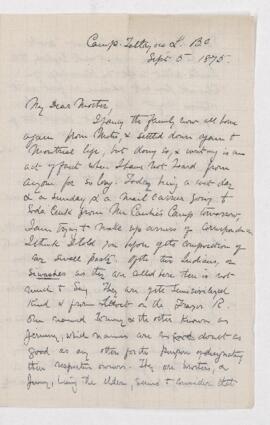 Camp. Tatlayoco L. BC
Sept 5. 1875.
My Dear Mother,
I fancy the family now all home
again from Metis, & settled down again to
Montreal life, but doing so, & writing is an
act of faith when I have not heard from
anyone for so long. Today being a wet day
& a Sunday & a mail carrier going to
Soda Creek from Mr Camp tomorrow,
I am trying to make up arrears of correspondence
I think I told you before of the composition of
my small party. Of the two Indians, or
Siwashes as they are called here there is not
much to say. They are quite
kind & from on the Frazer R.
One named Tommy & the other Known as
Jemmy, which names are no doubt as
good as any other for the purpose of designating
their respective owners. They are brothers, &
Jemmy, being the elder, seems to consider that